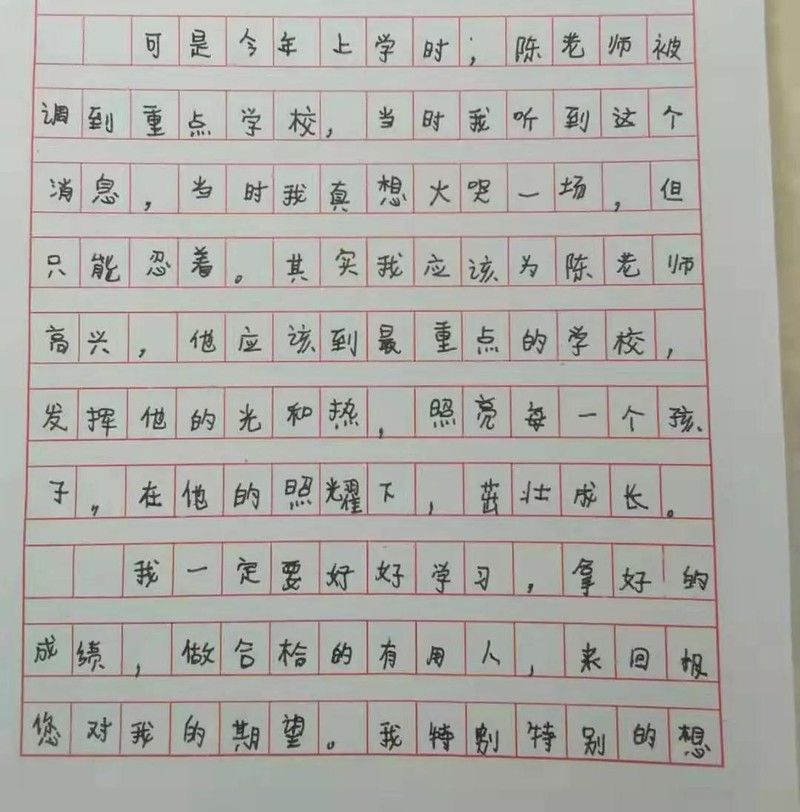 可是今年上学时，陈老师被
调到重点学校，当时我听到这个
消息，当时我真想大哭一场，但
只能忍着。其实我应该为陈老师
高兴，他应该到最重点的学校，
发挥他的光和热，照亮每一个孩
子，在他的照耀下，茁壮成长。
我一定要好好学习，拿好的
成绩，做合格的有用人，来回报
您对我的期望。我特别特别的想